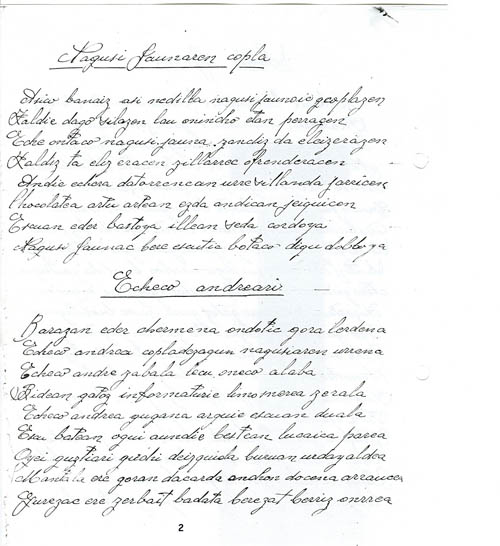 Nagusi Jaunaren copla
Asico banaiz asi nedilla nagusi jaunoic goplazen
Zaldie dago silazen lau onincho dan perragen
Eche ontaco nagusi jauna zandiz da elcizerazen
Zaldiz ta eliz eracen zillarroc ofrenderacen
Andic echera datorrencan urre sillanda jarricen
Chocolatea artu artean ezda andican jeiquicen
Escuan eder bastoya illean seda cordoya
Nagusi Jaunac bere escutic botaco digu dobloya
Echeco andreari
Barazan eder chermena ondotic gora lerdena
Echeco andrea copladezagun nagusiaren urrena
Echeco andre zabala toqui oneco alaba
Bidean gatoz informaturic limosnerea zerala
Echeco andrea gugana arguie escuan duala
Escu batean ogui aundie bestean lucaica parea
Ogei guztiari guirchi deizquida buruan urdayaldea
Mantala ere goran dacarda anchon docena arraucea
Yurezac ere zerbait badata berezat berriz onrrea
2